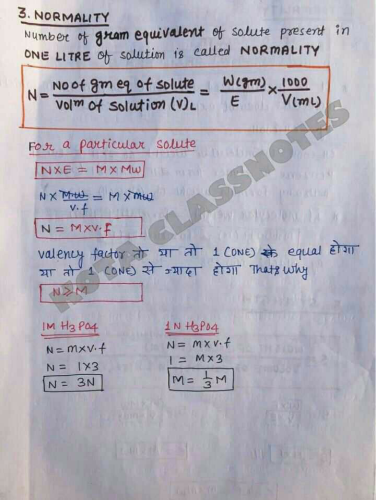 3. NORMALITY
Number of gram equivalent of solute present in
ONE LITRE of solution is called NORMALITY
N = No of gm eq of solute / Volm of solution (V)L = W(gm) / E × 1000 / V(mL)
For a particular solute
N×E = M×Mw
N × M.w / v.f = M × Mw
N = M×V.f
Valency factor तो या तो 1 (ONE) के equal होगा
या तो 1 (ONE) से ज्यादा होगा that's why
N≥M
1M H3PO4
N = M×V.f
N = 1×3
N = 3N
1N H3PO4
N = M×V.f
1 = M×3
M = 1/3 M
KOTA CLASSNOTES